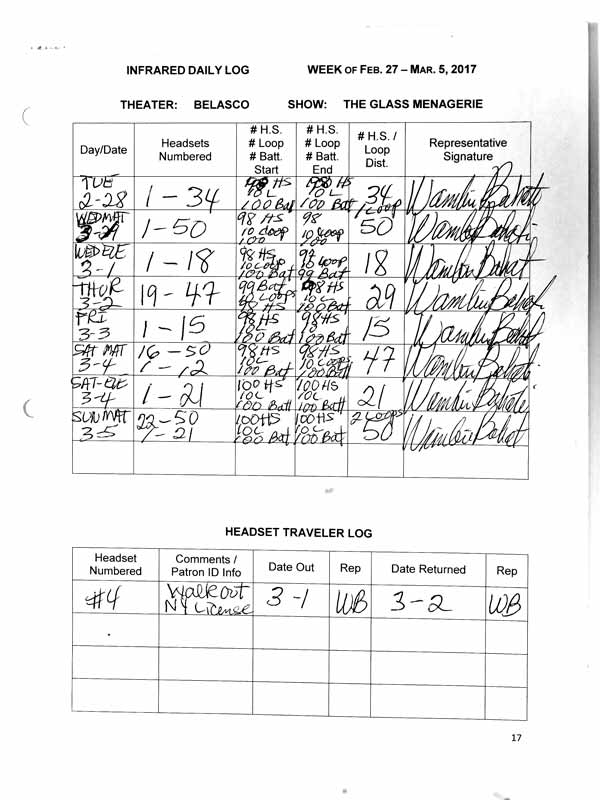 INFRARED DAILY LOG WEEK OF FEB. 27 – MAR. 5, 2017
THEATER: BELASCO SHOW: THE GLASS MENAGERIE
Day/Date Headsets Numbered # H.S. # Loop # Batt. Start # H.S. # Loop # Batt. End # H.S. / Loop Dist. Representative Signature
TUE 2-28 1-34 HS 10 L 100 Bat 98 HS 10 L 100 Batt 34 1 Loop Wambui Bahati
WED MAT 1-50 98 HS 10 Loop 100 98 10 Loop 100 50 Wambui Bahati
WED EVE 3-1 1-18 98 HS 10 Loop 100 Bat 97 10 Loop 99 Batt 18 Wambui Bahati
THUR 3-2 19-47 99 Bat Loops HS 98 HS 10 L 100 Bat 29 Wambui Bahati
FRI 3-3 1-15 98 HS 100 Bat 98 HS 10 100 Bat 15 Wambui Bahati
SAT MAT 3-4 16-50 1-12 98 HS 100 Bat 98 HS 10 Loops 100 Batt 47 Wambui Bahati
SAT-EVE 3-4 1-21 100 HS 10 L 100 Batt 100 HS 10 L 100 Batt 21 Wambui Bahati
SUN MAT 3-5 22-50 1-21 100 HS 10 L 100 Bat 100 HS 10 L 100 Batt 2 Loops 50 Wambui Bahati
HEADSET TRAVELER LOG
Headset Numbered Comments / Patron ID Info Date Out Rep Date Returned Rep
#4 Walkout NY License 3-1 WB 3-2 WB
17